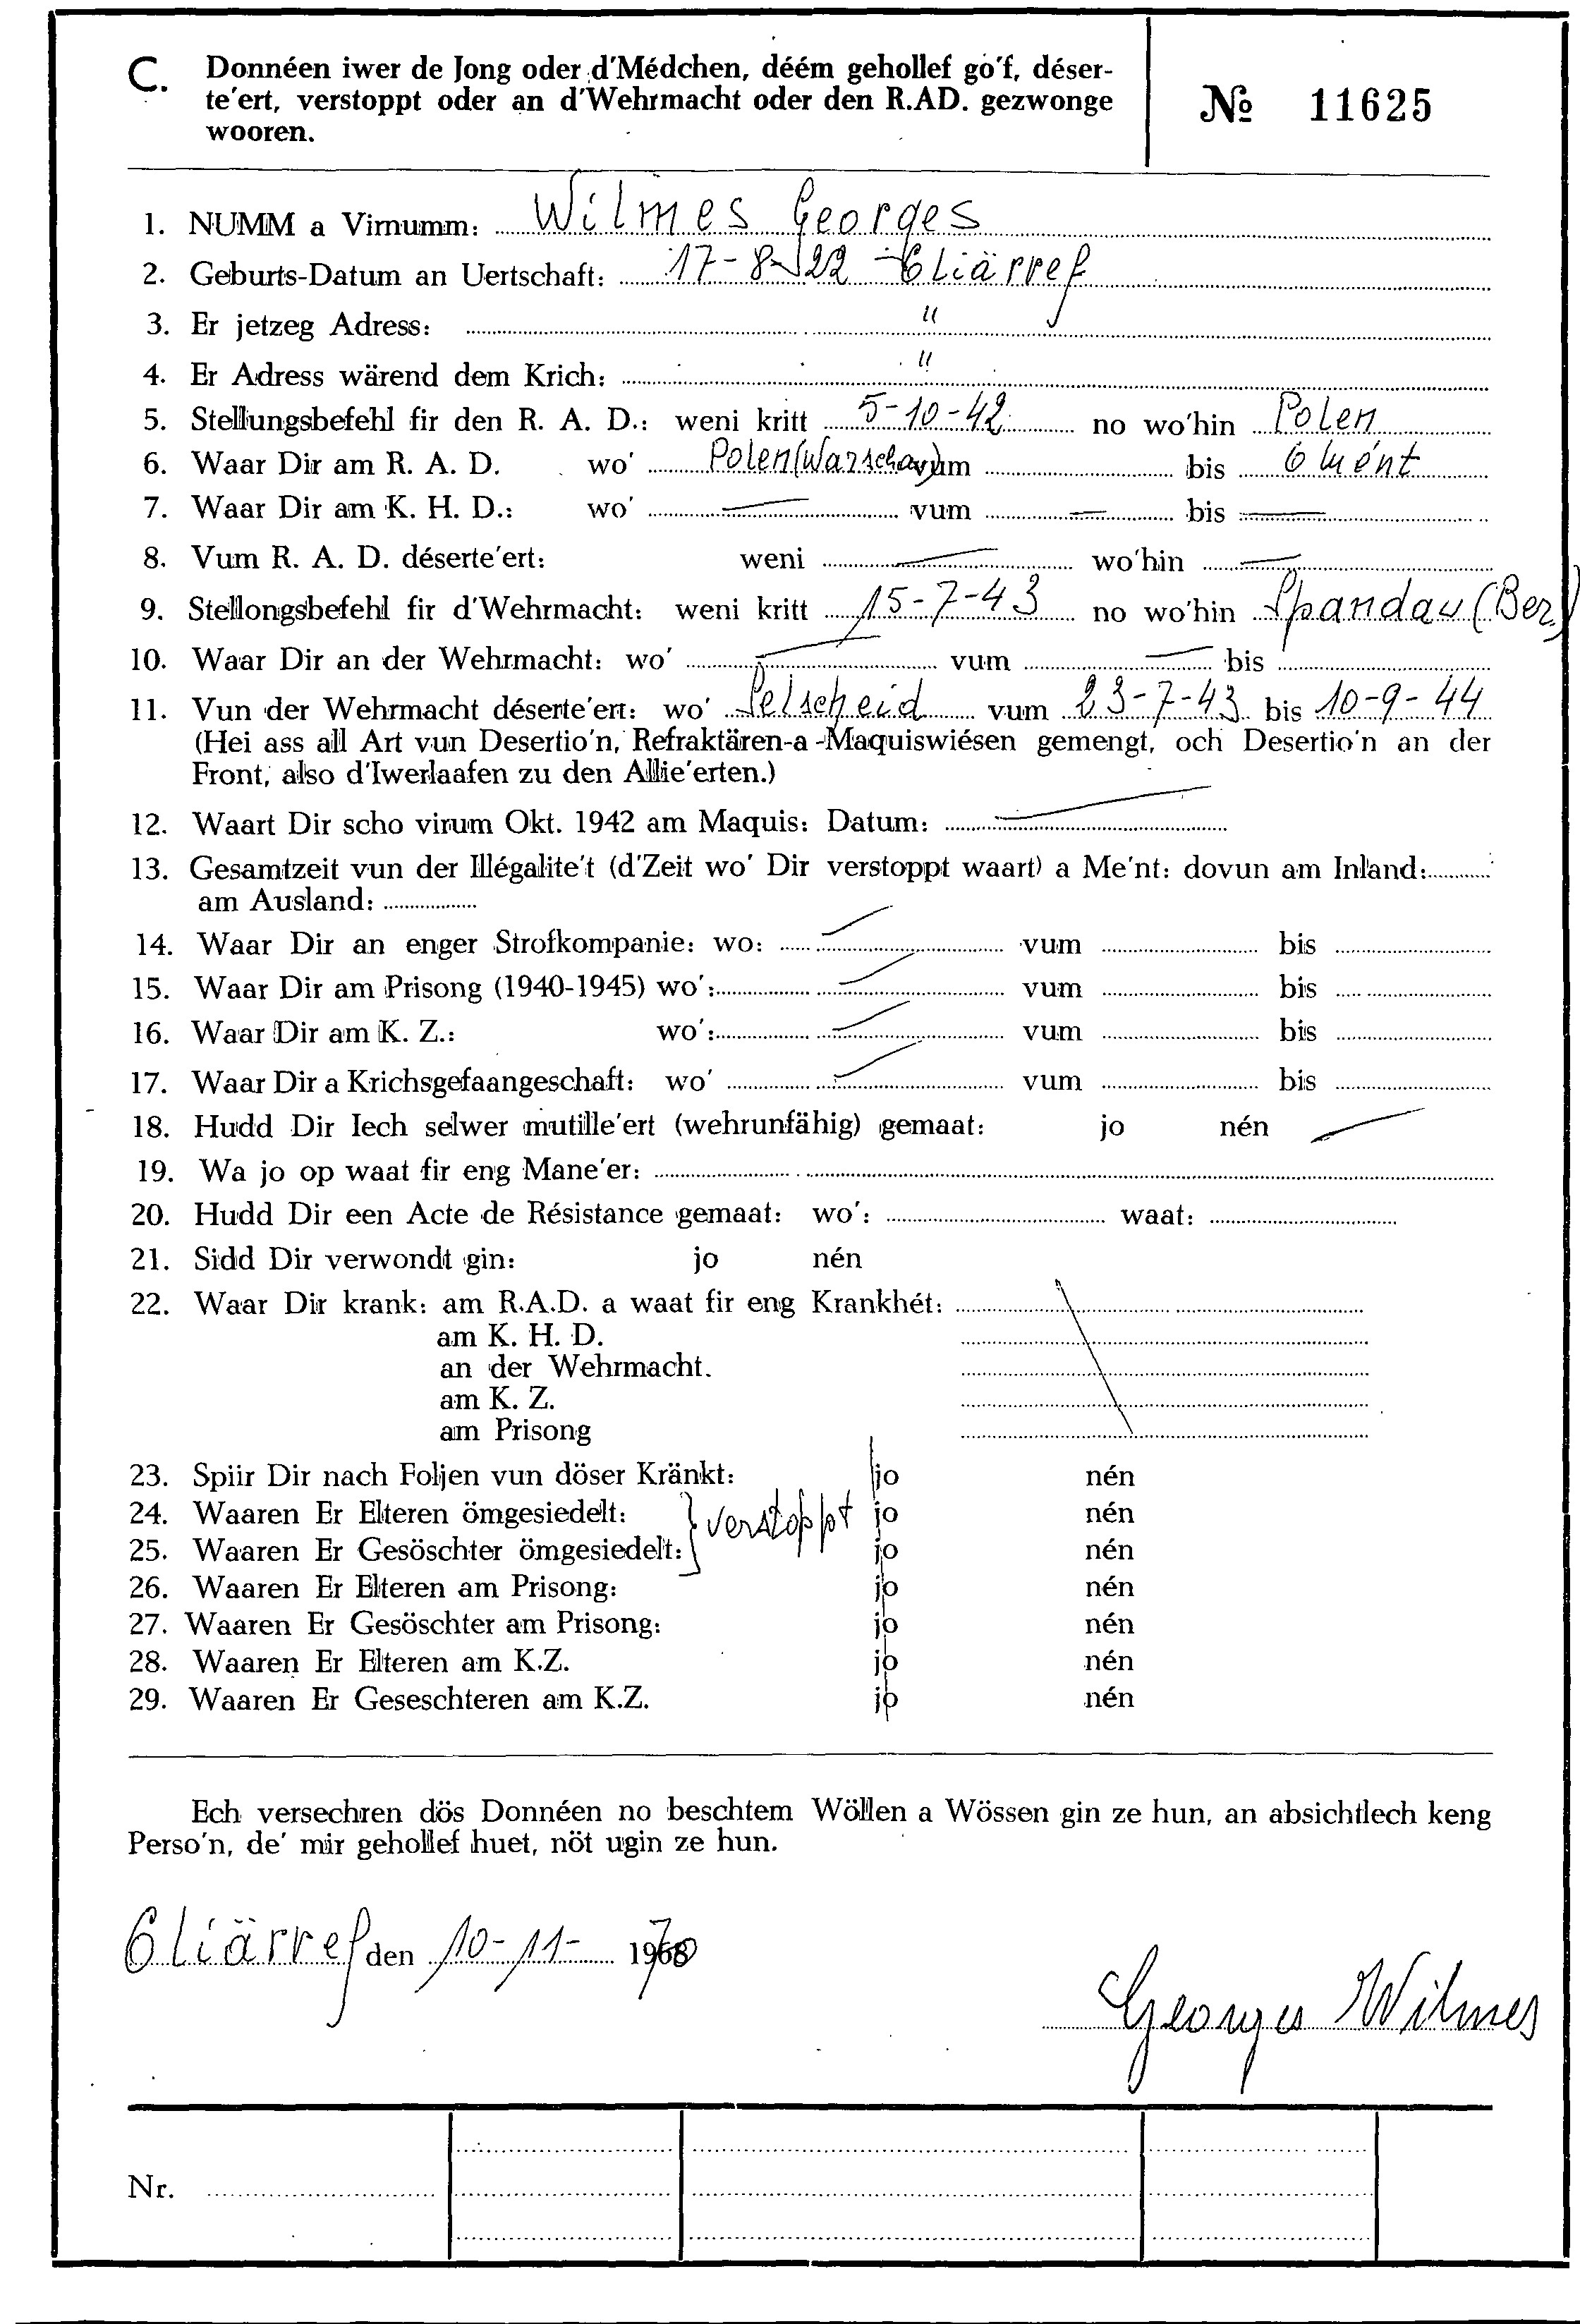 C. Donnéen iwer de Jong oder d'Médchen, déém gehollef go'f, déser-
te'ert, verstoppt oder an d'Wehrmacht oder den R.AD. gezwonge
wooren.
№ 11625
1. NUMM a Virnumm: Wilmes Georges
2. Geburts-Datum an Uertschaft: 17-8-22 - Cliärref
3. Er jetzeg Adress: "
4. Er Adress wärend dem Krich: "
5. Stellungsbefehl fir den R. A. D.: weni kritt 5-10-42 no wo'hin Polen
6. Waar Dir am R. A. D. wo' Polen (Warschau) vum bis 6 Mént
7. Waar Dir am K. H. D.: wo' — vum — bis —
8. Vum R. A. D. déserte'ert: weni — wo'hin —
9. Stellongsbefehl fir d'Wehrmacht: weni kritt 15-7-43 no wo'hin Spandau (Ber.)
10. Waar Dir an der Wehrmacht: wo' — vum — bis
11. Vun der Wehrmacht déserte'ert: wo' Pelscheid vum 23-7-43 bis 10-9-44
(Hei ass all Art vun Desertio'n, Refraktären-a -Maquiswiésen gemengt, och Desertio'n an der
Front, also d'Iwerlaafen zu den Allie'erten.)
12. Waart Dir scho virum Okt. 1942 am Maquis: Datum: —
13. Gesamtzeit vun der Illégalite't (d'Zeit wo' Dir verstoppt waart) a Me'nt: dovun am Inland:
am Ausland:
14. Waar Dir an enger Strofkompanie: wo: — vum bis
15. Waar Dir am Prisong (1940-1945) wo': — vum bis
16. Waar Dir am K. Z.: wo': — vum bis
17. Waar Dir a Krichsgefaangeschaft: wo' — vum bis
18. Hudd Dir Iech selwer mutille'ert (wehrunfähig) gemaat: jo nén —
19. Wa jo op waat fir eng Mane'er:
20. Hudd Dir een Acte de Résistance gemaat: wo': waat:
21. Sidd Dir verwondt gin: jo nén
22. Waar Dir krank: am R.A.D. a waat fir eng Krankhét:
am K. H. D.
an der Wehrmacht.
am K. Z.
am Prisong
23. Spiir Dir nach Foljen vun döser Kränkt: jo nén
24. Waaren Er Elteren ömgesiedelt: } verstoppt jo nén
25. Waaren Er Gesöschter ömgesiedelt: jo nén
26. Waaren Er Elteren am Prisong: jo nén
27. Waaren Er Gesöschter am Prisong: jo nén
28. Waaren Er Elteren am K.Z. jo nén
29. Waaren Er Geseschteren am K.Z. jo nén
Ech versechren dös Donnéen no beschtem Wöllen a Wössen gin ze hun, an absichtlech keng
Perso'n, de' mir gehollef huet, nöt ugin ze hun.
Cliärref den 10-11- 1970
Georges Wilmes
Nr.